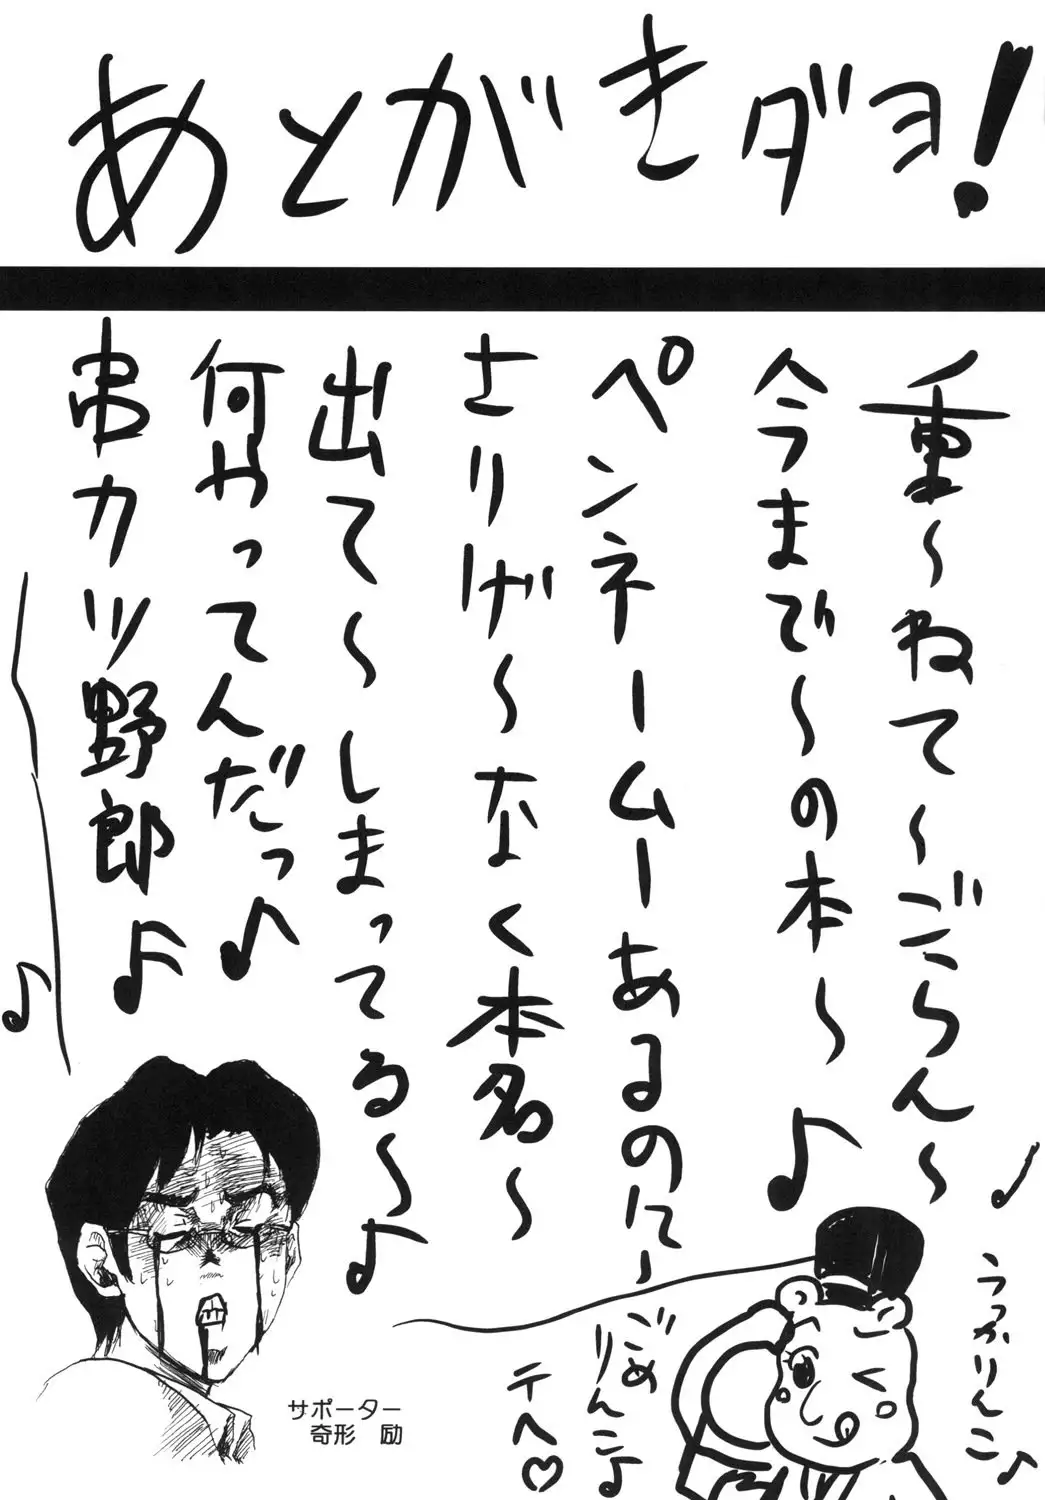 あとがきダヨ!
重～ねて～ごらん～
今まで～の本～♪
ペンネームーあるのに～
さりげ～なく本名～
出て～しまってる～♪
何やってんだっ♪
串カツ野郎♪
うっかりんこ♪
ごめ
りんこ♪
テヘ♡
サポーター
奇形 励